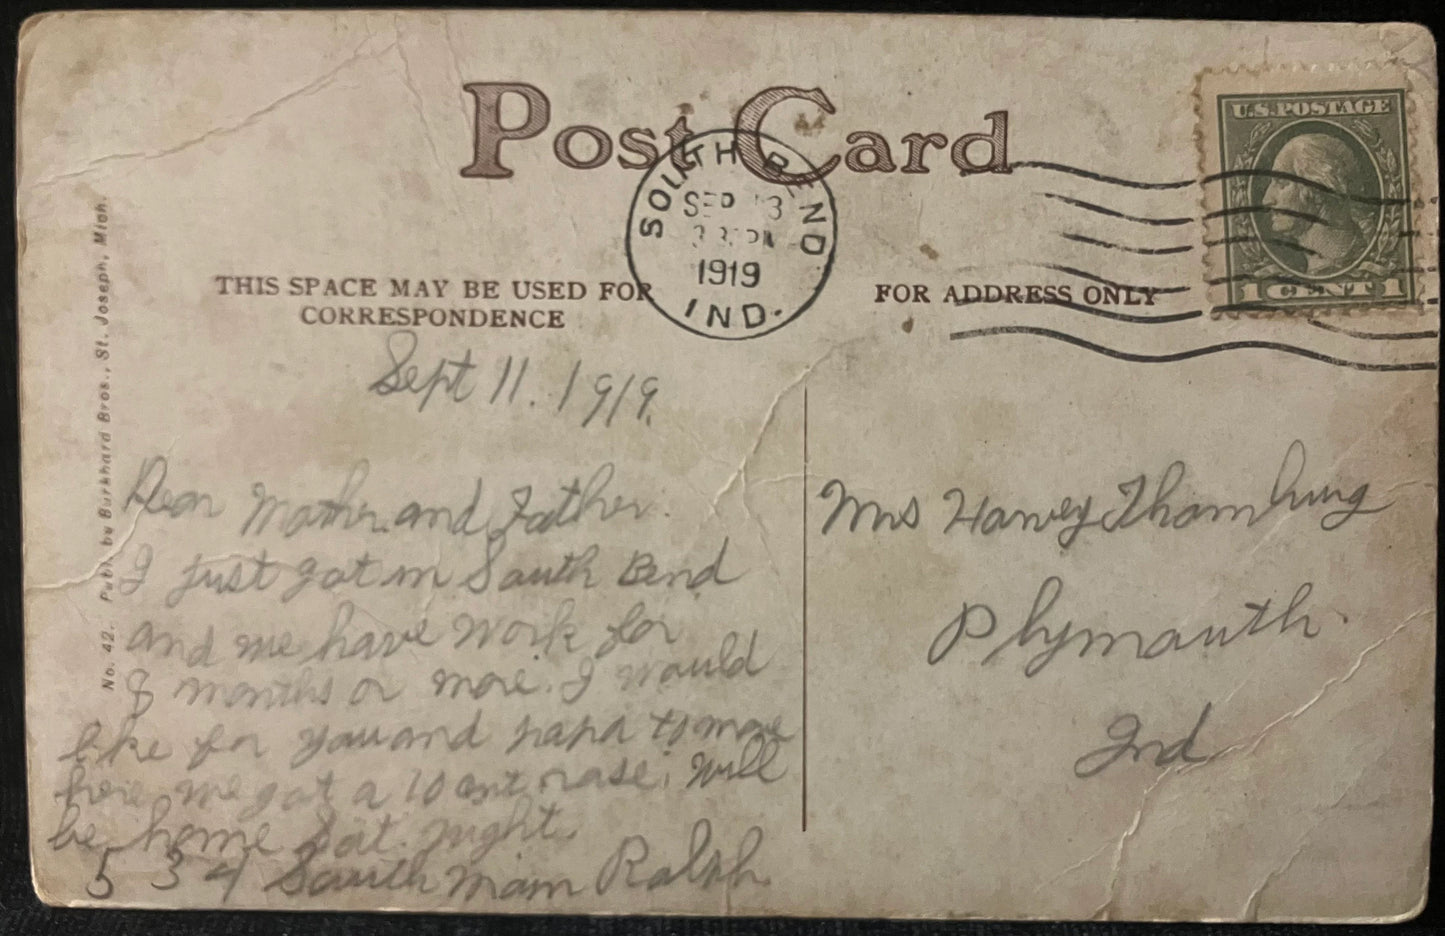 Post Card
SOUTH BEND
SEP 13
PM
1919
IND.
U.S. POSTAGE
1 CENT 1
THIS SPACE MAY BE USED FOR
CORRESPONDENCE
FOR ADDRESS ONLY
No. 42. Publ. by Burkhard Bros., St. Joseph, Mich.
Sept 11. 1919.
Dear Mother and Father.
I just got in South Bend
and we have work for
months or more. I would
like for you and papa to move
here we got a 10 cent rase. Will
be home Sat. night.
534 South Main Ralph
Mrs Harvey
Plymouth.
Ind